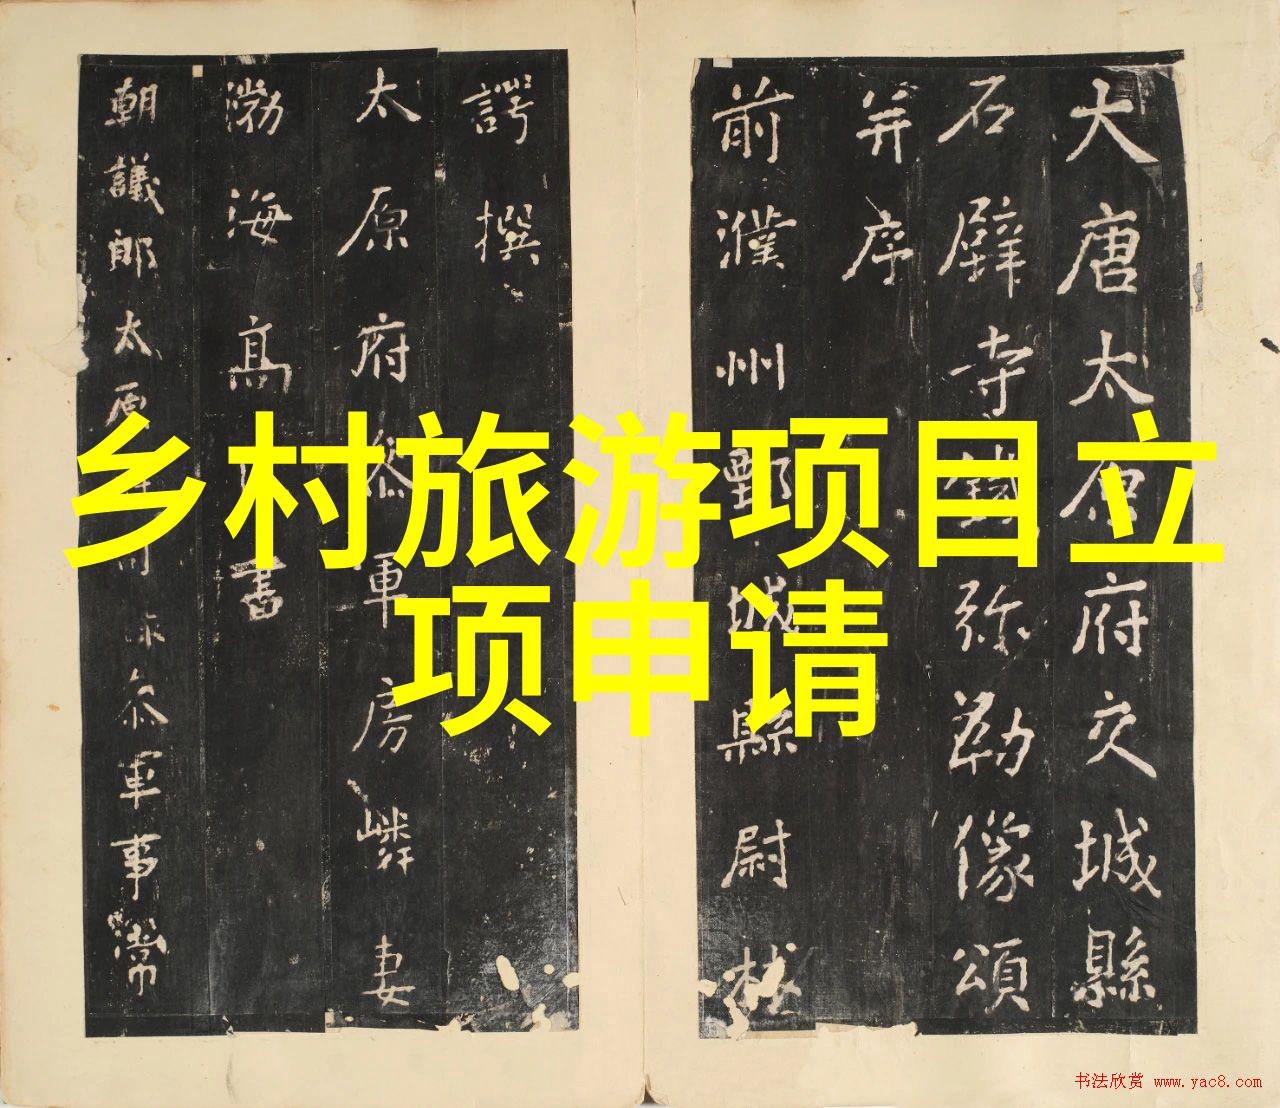 大唐太原府交城縣
石壁寺鐵弥勒像頌
并序
前濮州鄄城縣尉林
諤撰
太原府叅軍房嶙妻
渤海髙書
朝議郎太原叅軍事常
乡村旅游项目立
项申请
书法欣赏 www.yac8.com